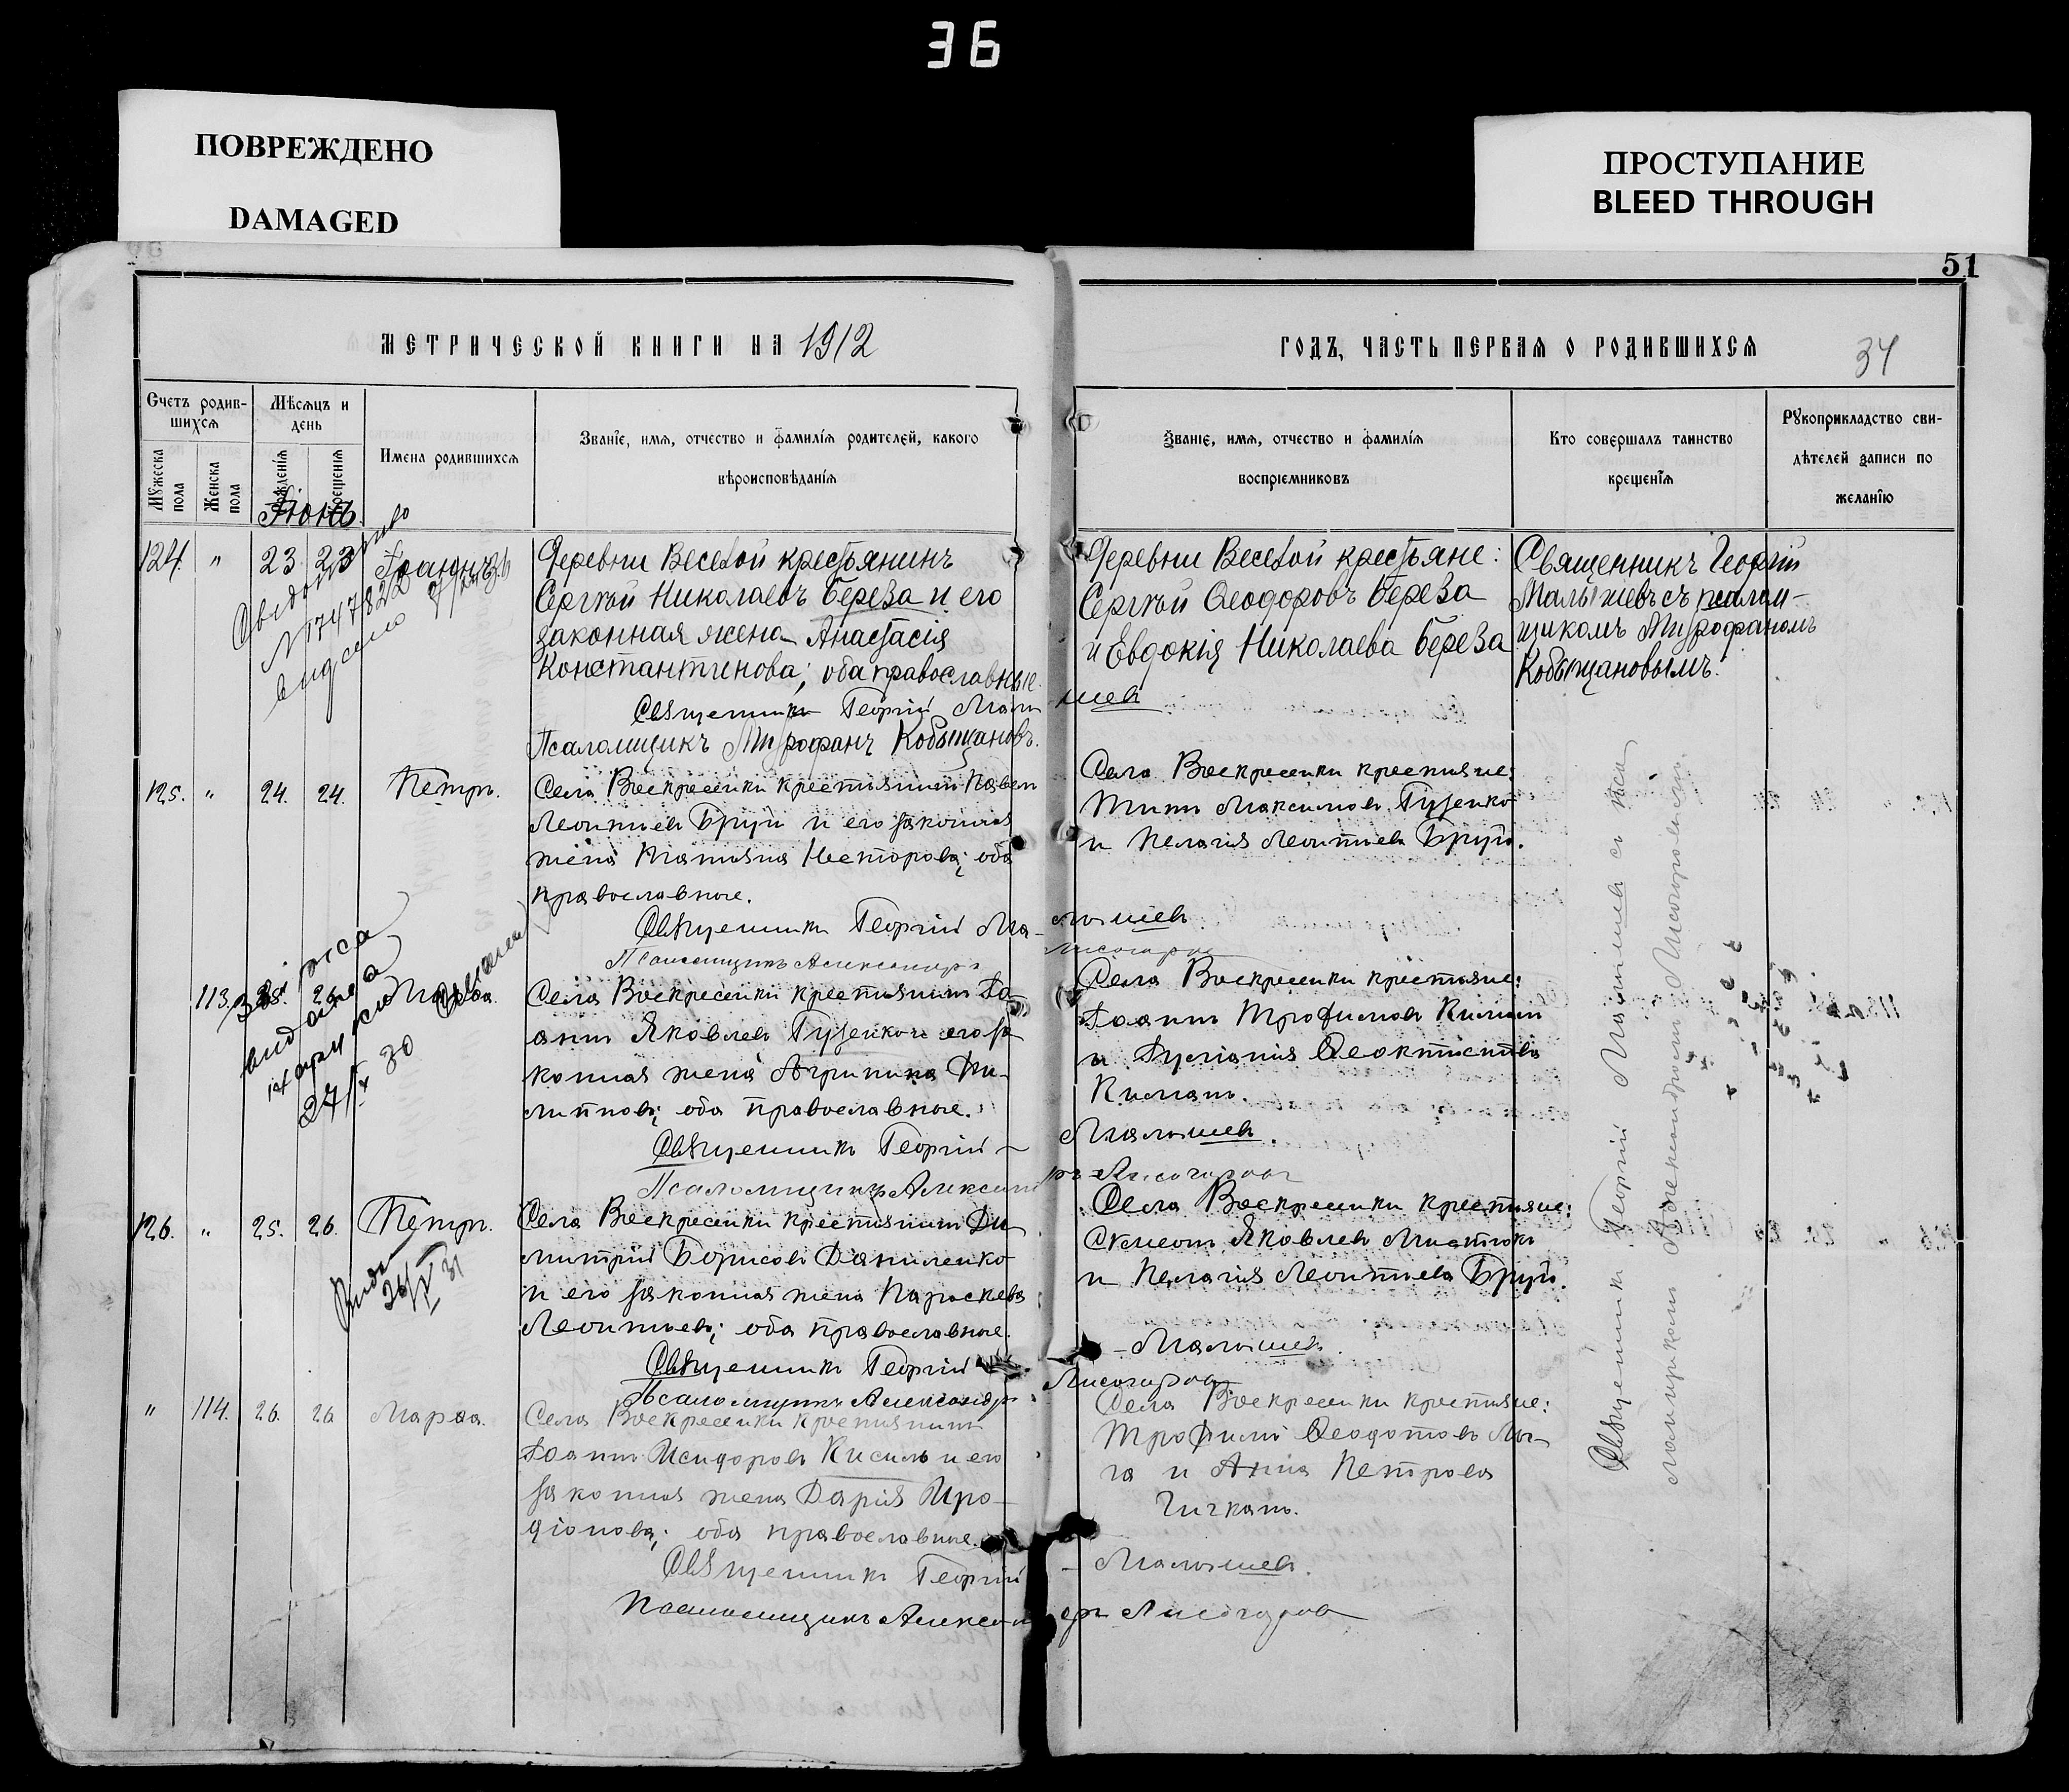 36
ПОВРЕЖДЕНО
DAMAGED
ПРОСТУПАНИЕ
BLEED THROUGH
51
МЕТРИЧЕСКОЙ КНИГИ НА 1912
ГОДЪ, ЧАСТЬ ПЕРВАЯ О РОДИВШИХСЯ
34
Счетъ родив-
шихся
Мѣсяцъ и
день
Мужеска
пола
Женска
пола
рожденія
крещенія
Имена родившихся
Званіе, имя, отчество и фамилія родителей, какого
вѣроисповѣданія
Званіе, имя, отчество и фамилія
воспріемниковъ
Кто совершалъ таинство
крещенія
Рукоприкладство сви-
дѣтелей записи по
желанію
Іюнь.
124. " 23 23 Іоаннъ
Деревни Веселой крестьянинъ
Сергѣй Николаевъ Береза и его
законная жена Анастасія
Константинова; оба православные.
Священникъ Георгій Малы-
шевъ
Псаломщикъ Митрофанъ Кобыщановъ.
Деревни Веселой крестьяне:
Сергѣй Ѳеодоровъ Береза
и Евдокія Николаева Береза
Священникъ Георгій
Малышевъ съ псалом-
щикомъ Митрофаномъ
Кобыщановымъ.
125. " 24. 24. Петръ.
Села Воскресенки крестьянинъ Павелъ
Леонтьевъ Бруй и его законная
жена Татіяна Несторова; оба
православные.
Священникъ Георгій Ма-
лышевъ
Псаломщикъ Александръ
Села Воскресенки крестьяне:
Титъ Максимовъ Гузенко
и Пелагія Леонтьева Бруй.
113. 25. 26.
Села Воскресенки крестьянинъ Іо-
аннъ Яковлевъ Гузенко и его за-
конная жена Агрипина Фи-
липпова; оба православные.
Священникъ Георгій
Малышевъ.
Псаломщикъ Александ
ръ Лисогоровъ
Села Воскресенки крестьяне:
Іоаннъ Трофимовъ
и Іуліанія Ѳеоктистова
126. " 25. 26. Петръ.
Села Воскресенки крестьянинъ Ди-
митрій Борисовъ Даниленко
и его законная жена Параскева
Леонтьева; оба православные.
Священникъ Георгій
Малышевъ.
Псаломщикъ Александръ
Лисогоровъ
Села Воскресенки крестьяне:
Яковлевъ
и Пелагія Леонтьева Бруй.
" 114. 26. 26 Марѳа.
Села Воскресенки крестьянинъ
Іоаннъ Исидоровъ Кисиль и его
законная жена Дарія Иро-
діонова; оба православные.
Священникъ Георгій
Малышевъ.
Псаломщикъ Александ
ръ Лисогоровъ
Села Воскресенки крестьяне:
Трофимъ Ѳеодотовъ
и Анна Петрова
Священникъ Георгій Малышевъ съ пса-
ломщикомъ Александромъ Лисогоровымъ.